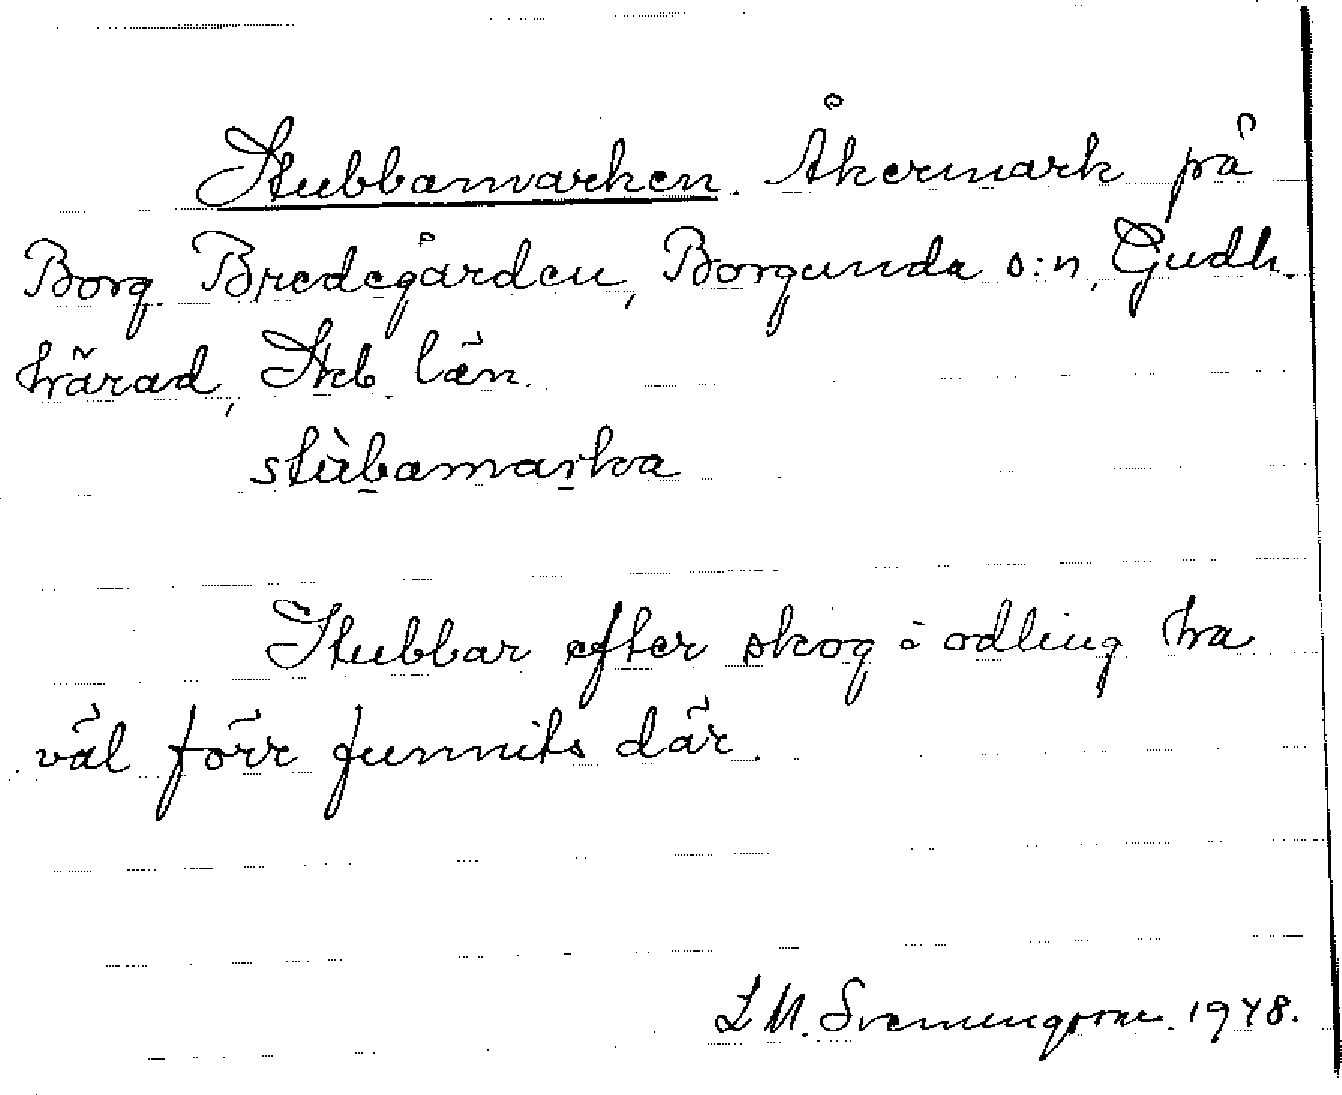 Stubbamarken. Åkermark på
Borg. Bredegården, Borgunda s:n, Gudh.
härad, Skb. län.
stùbamarka
Stubbar efter skog i odling ha
väl förr funnits där.
L M. Svennungsson. 1948.